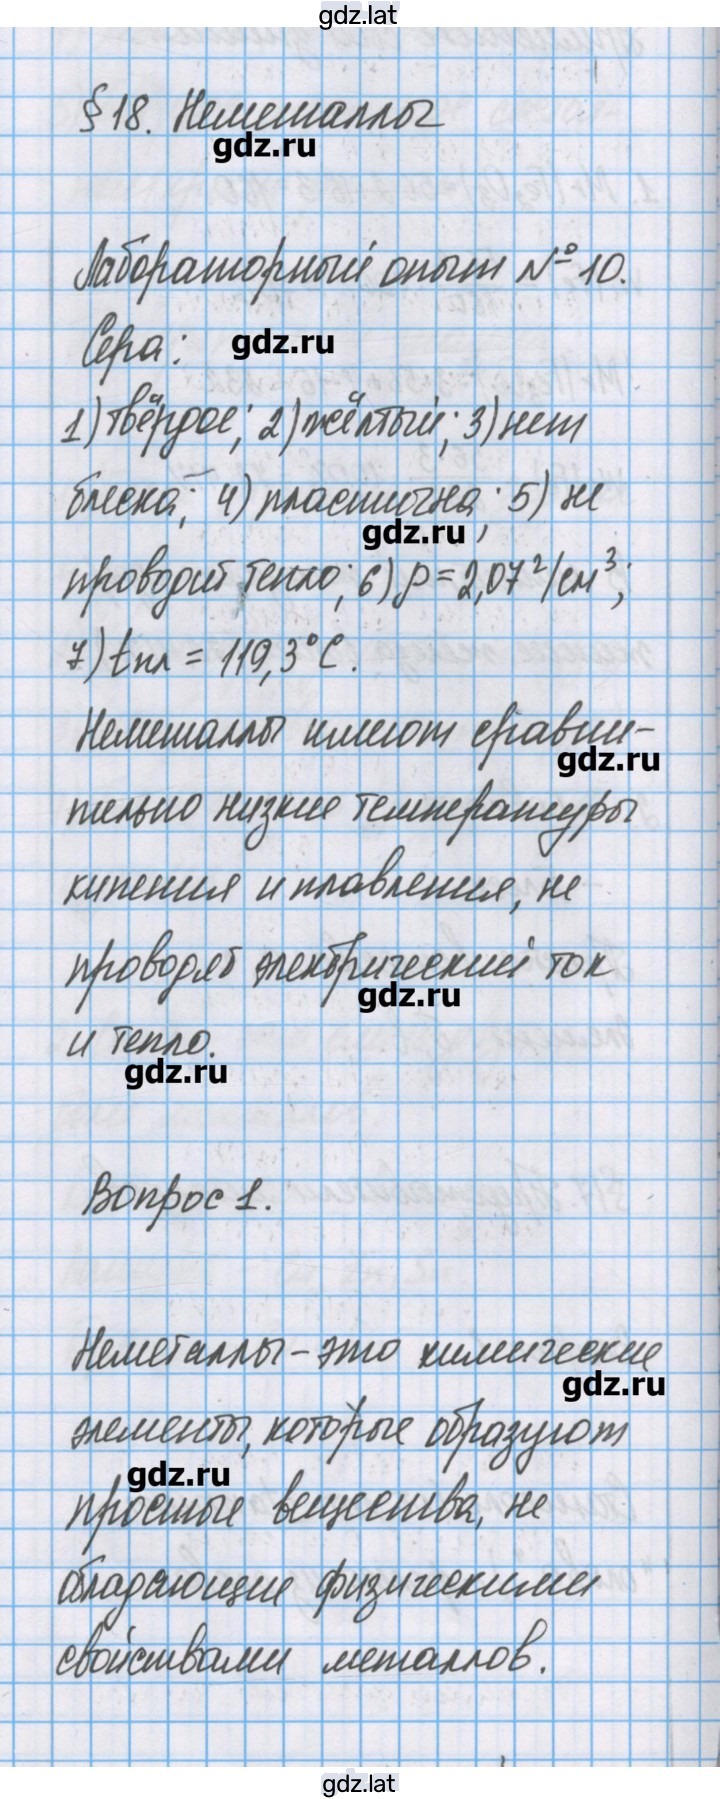 gdz.lat
§18. Неметаллы
gdz.ru
Лабораторный опыт №10.
Сера:
gdz.ru
1) твёрдое; 2) жёлтый; 3) нет
блеска; 4) пластична; 5) не
gdz.ru
проводит тепло; 6) ρ=2,07 г/см³;
7) tпл = 119,3°C.
Неметаллы имеют сравни-
gdz.ru
тельно низкие температуры
кипения и плавления, не
проводят электрический ток
gdz.ru
и тепло.
gdz.ru
Вопрос 1.
Неметаллы – это химические
gdz.ru
элементы, которые образуют
gdz.ru
простые вещества, не
обладающие физическими
свойствами металлов.
gdz.lat